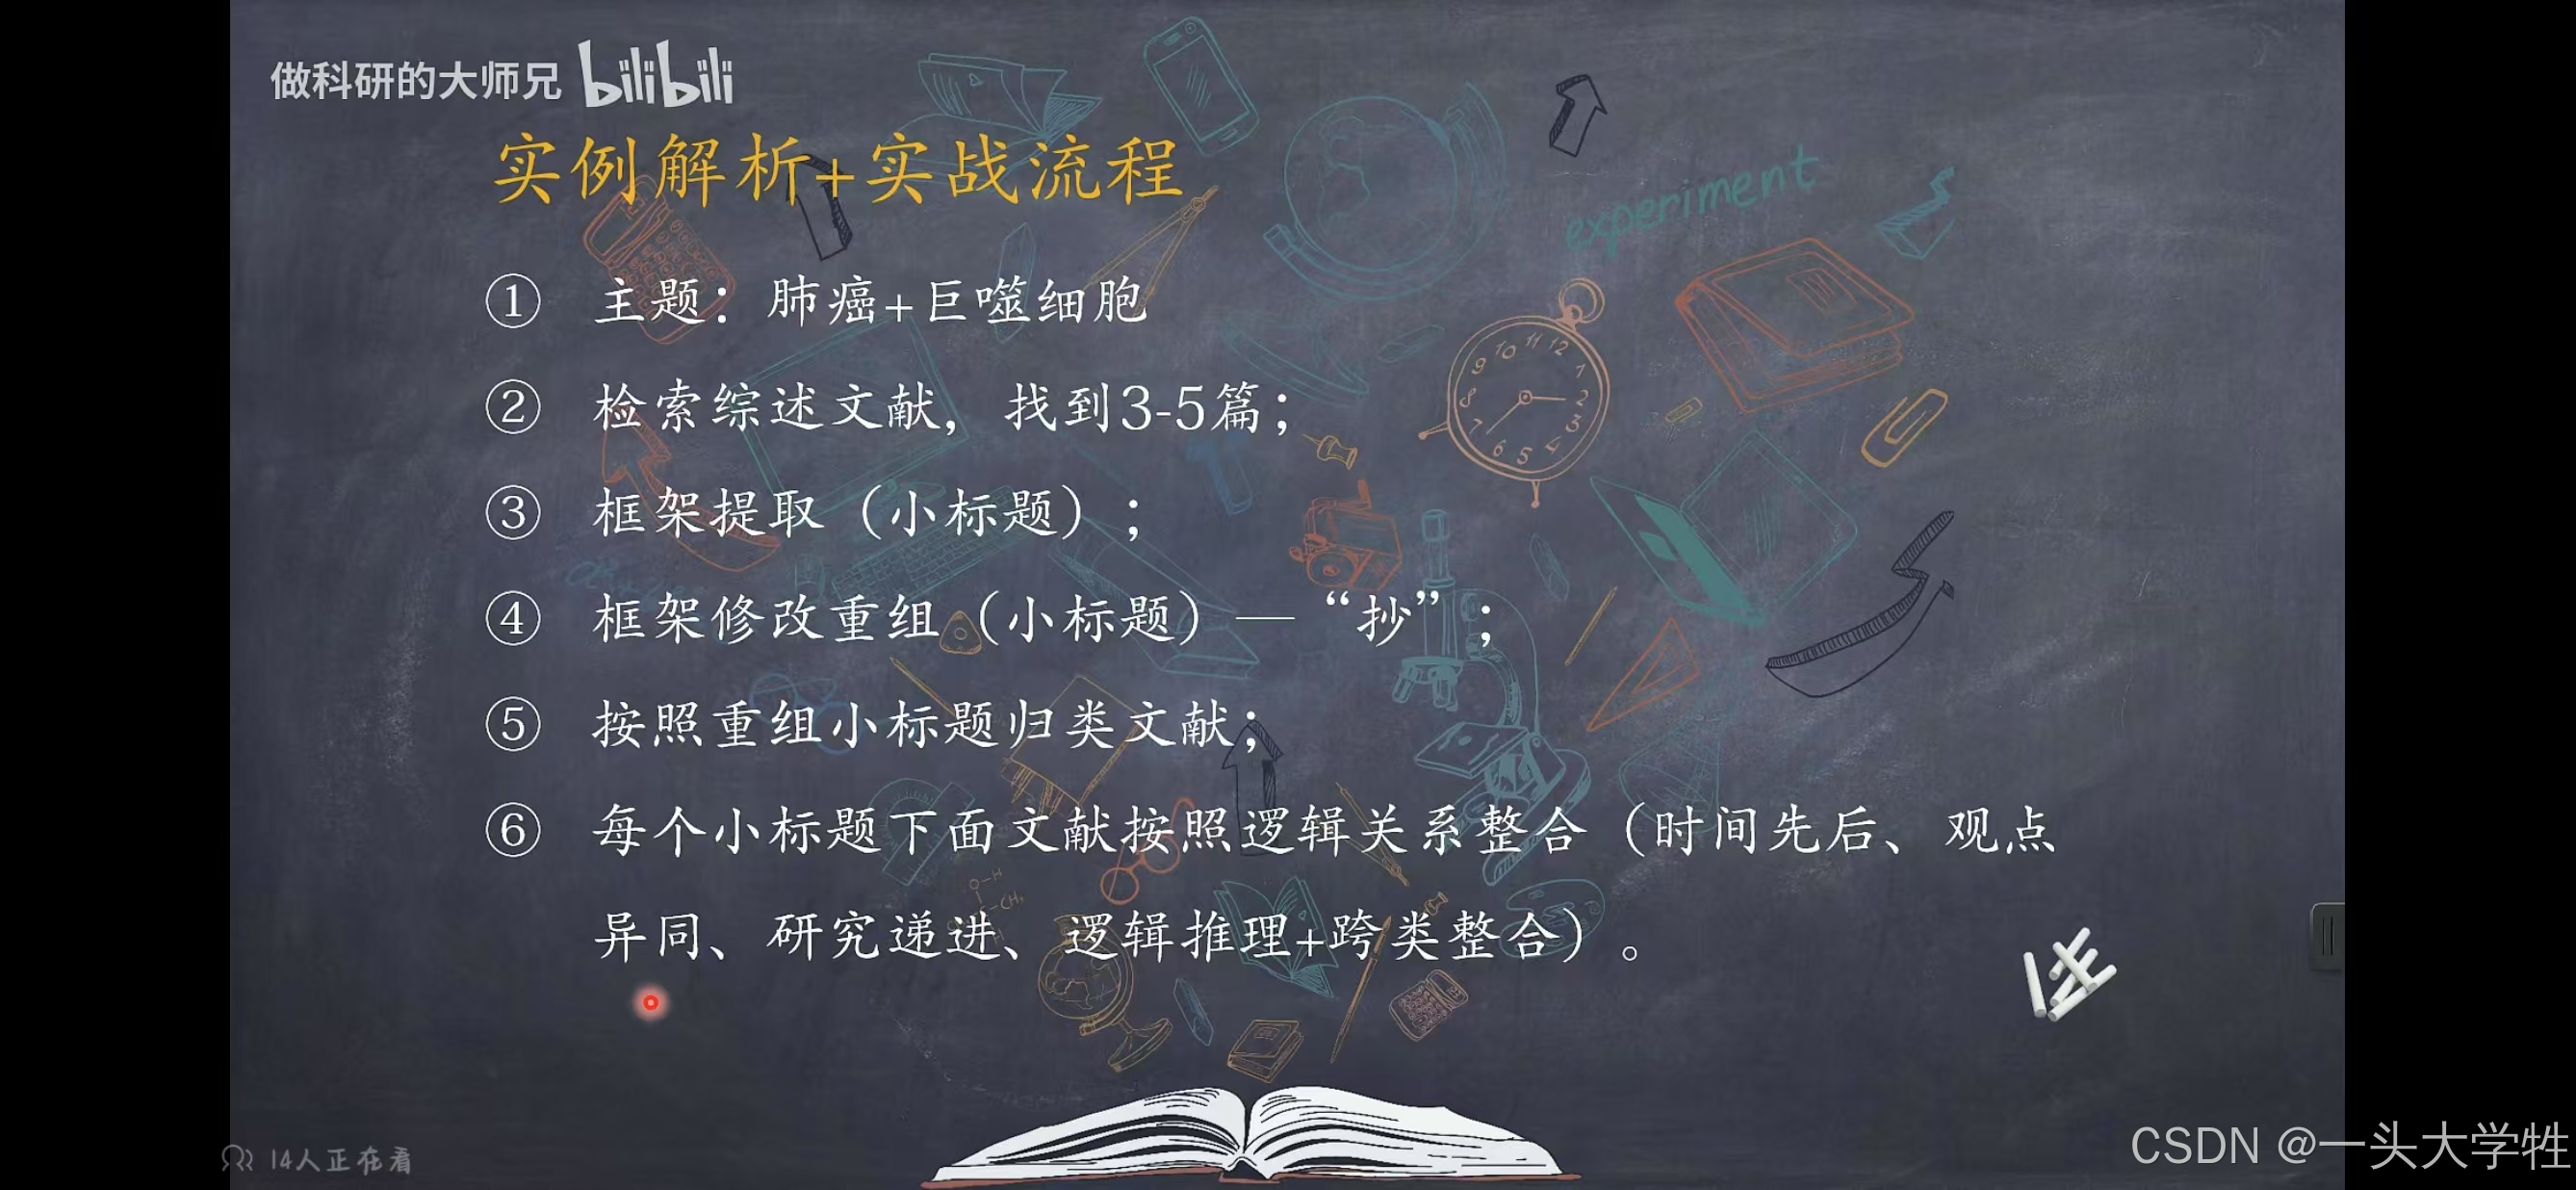 做科研的大师兄 bilibili
实例解析+实战流程
experiment
① 主题：肺癌+巨噬细胞
② 检索综述文献，找到3-5篇；
③ 框架提取（小标题）；
④ 框架修改重组（小标题）—“抄”；
⑤ 按照重组小标题归类文献；
⑥ 每个小标题下面文献按照逻辑关系整合（时间先后、观点
异同、研究递进、逻辑推理+跨类整合）。
14人正在看
CSDN @一头大学牲